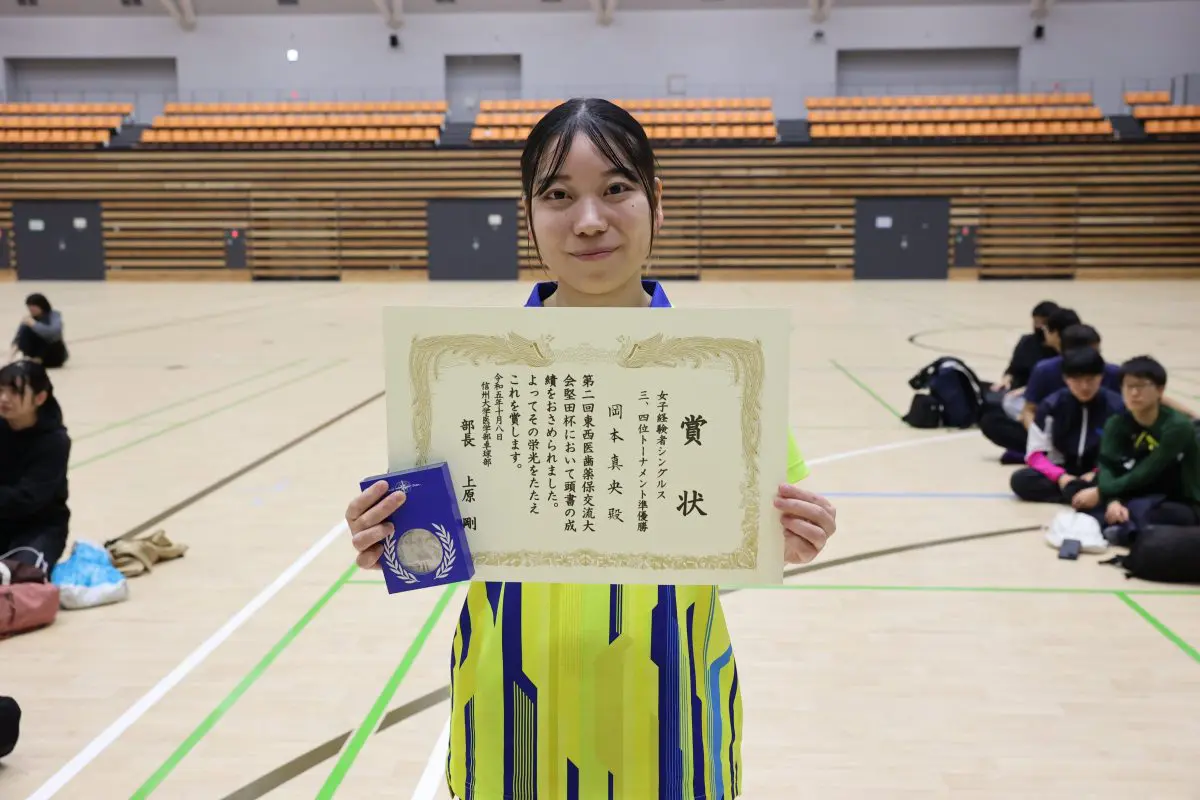 賞状
女子経験者シングルス
三、四位トーナメント準優勝
岡本真央殿
第二回東西医歯薬保交流大
会堅田杯において頭書の成
績をおさめられました。
よってその栄光をたたえ
これを賞します。
令和五年十月八日
信州大学医学部卓球部
部長 上原 剛